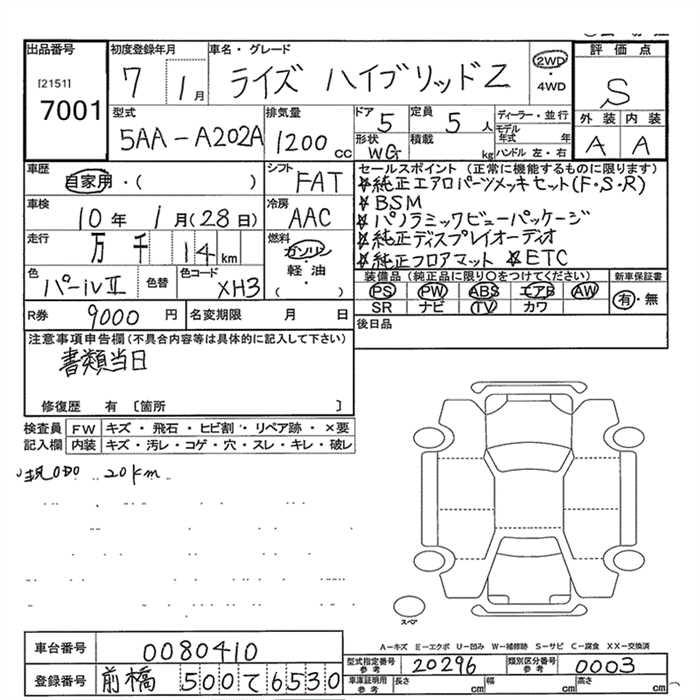 出品番号
[2151]
7001
初度登録年月
7 1 月
車名・グレード
ライズ ハイブリッドZ
2WD
・
4WD
評価点
S
型式
5AA-A202A
排気量
1200 cc
ドア
5
定員
5 人
形状
WG
積載
kg
ディーラー・並行
モデル年式 年
ハンドル 左・右
外装 内装
A A
車歴
自家用・( )
シフト
FAT
車検
10 年 1 月(28日)
冷房
AAC
走行
万 千 14 km
燃料
ガソリン
・
軽油
( )
色
パールⅡ
色替
色コード
XH3
セールスポイント(正常に機能するものに限ります)
☆純正エアロパーツメッキセット(F・S・R)
☆BSM
☆パノラミックビューパッケージ
☆純正ディスプレイオーディオ
☆純正フロアマット ☆ETC
装備品(純正品に限り○をつけてください)
新車保証書
PS PW ABS エアB AW
SR ナビ TV カワ
有・無
R券 9000 円
名変期限 月 日
後日品
注意事項申告欄(不具合内容等は具体的に記入して下さい)
書類当日
修復歴 有 [箇所 ]
検査員 FW キズ・飛石・ヒビ割・リペア跡・×要
記入欄 内装 キズ・汚レ・コゲ・穴・スレ・キレ・破レ
現ODO 20km
スペア
A－キズ E－エクボ U－凹み W－補修跡 S－サビ C－腐食 XX－交換済
車台番号 0080410
登録番号 前橋 500て6530
型式指定番号 参考 20296
類別区分番号 参考 0003
車庫証明用 参考 長さ cm 幅 cm 高さ cm